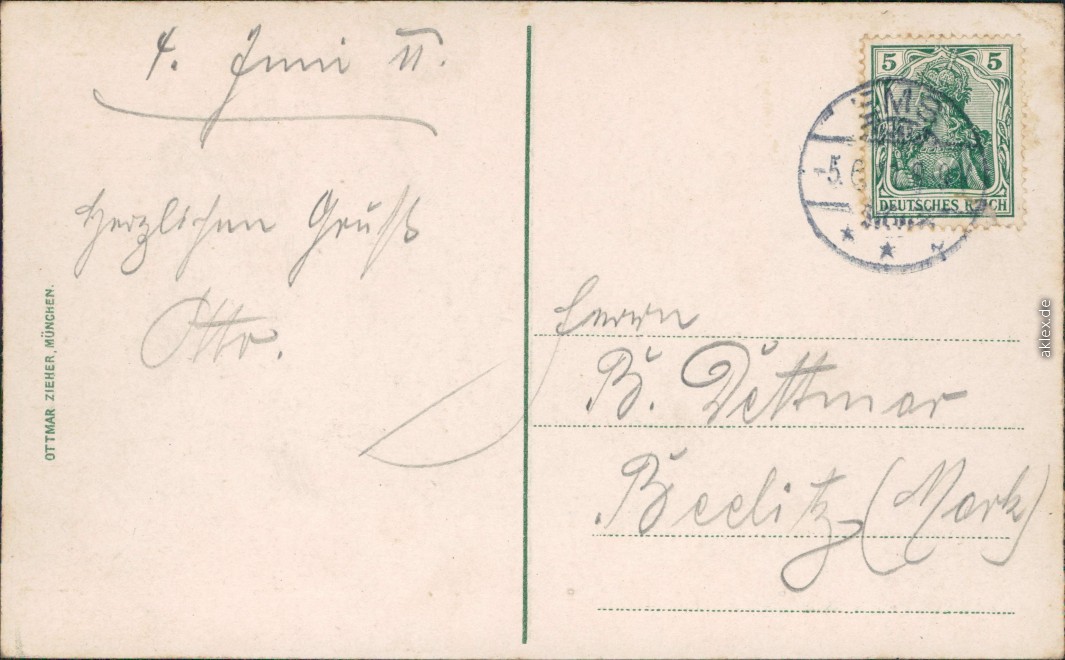 4. Juni 11.
Herzlichen Gruß
Otto.
OTTMAR ZIEHER, MÜNCHEN.
5 5
DEUTSCHES REICH
EMS
5.6
Herrn
B. Dettmar
Beelitz (Mark)
aklex.de